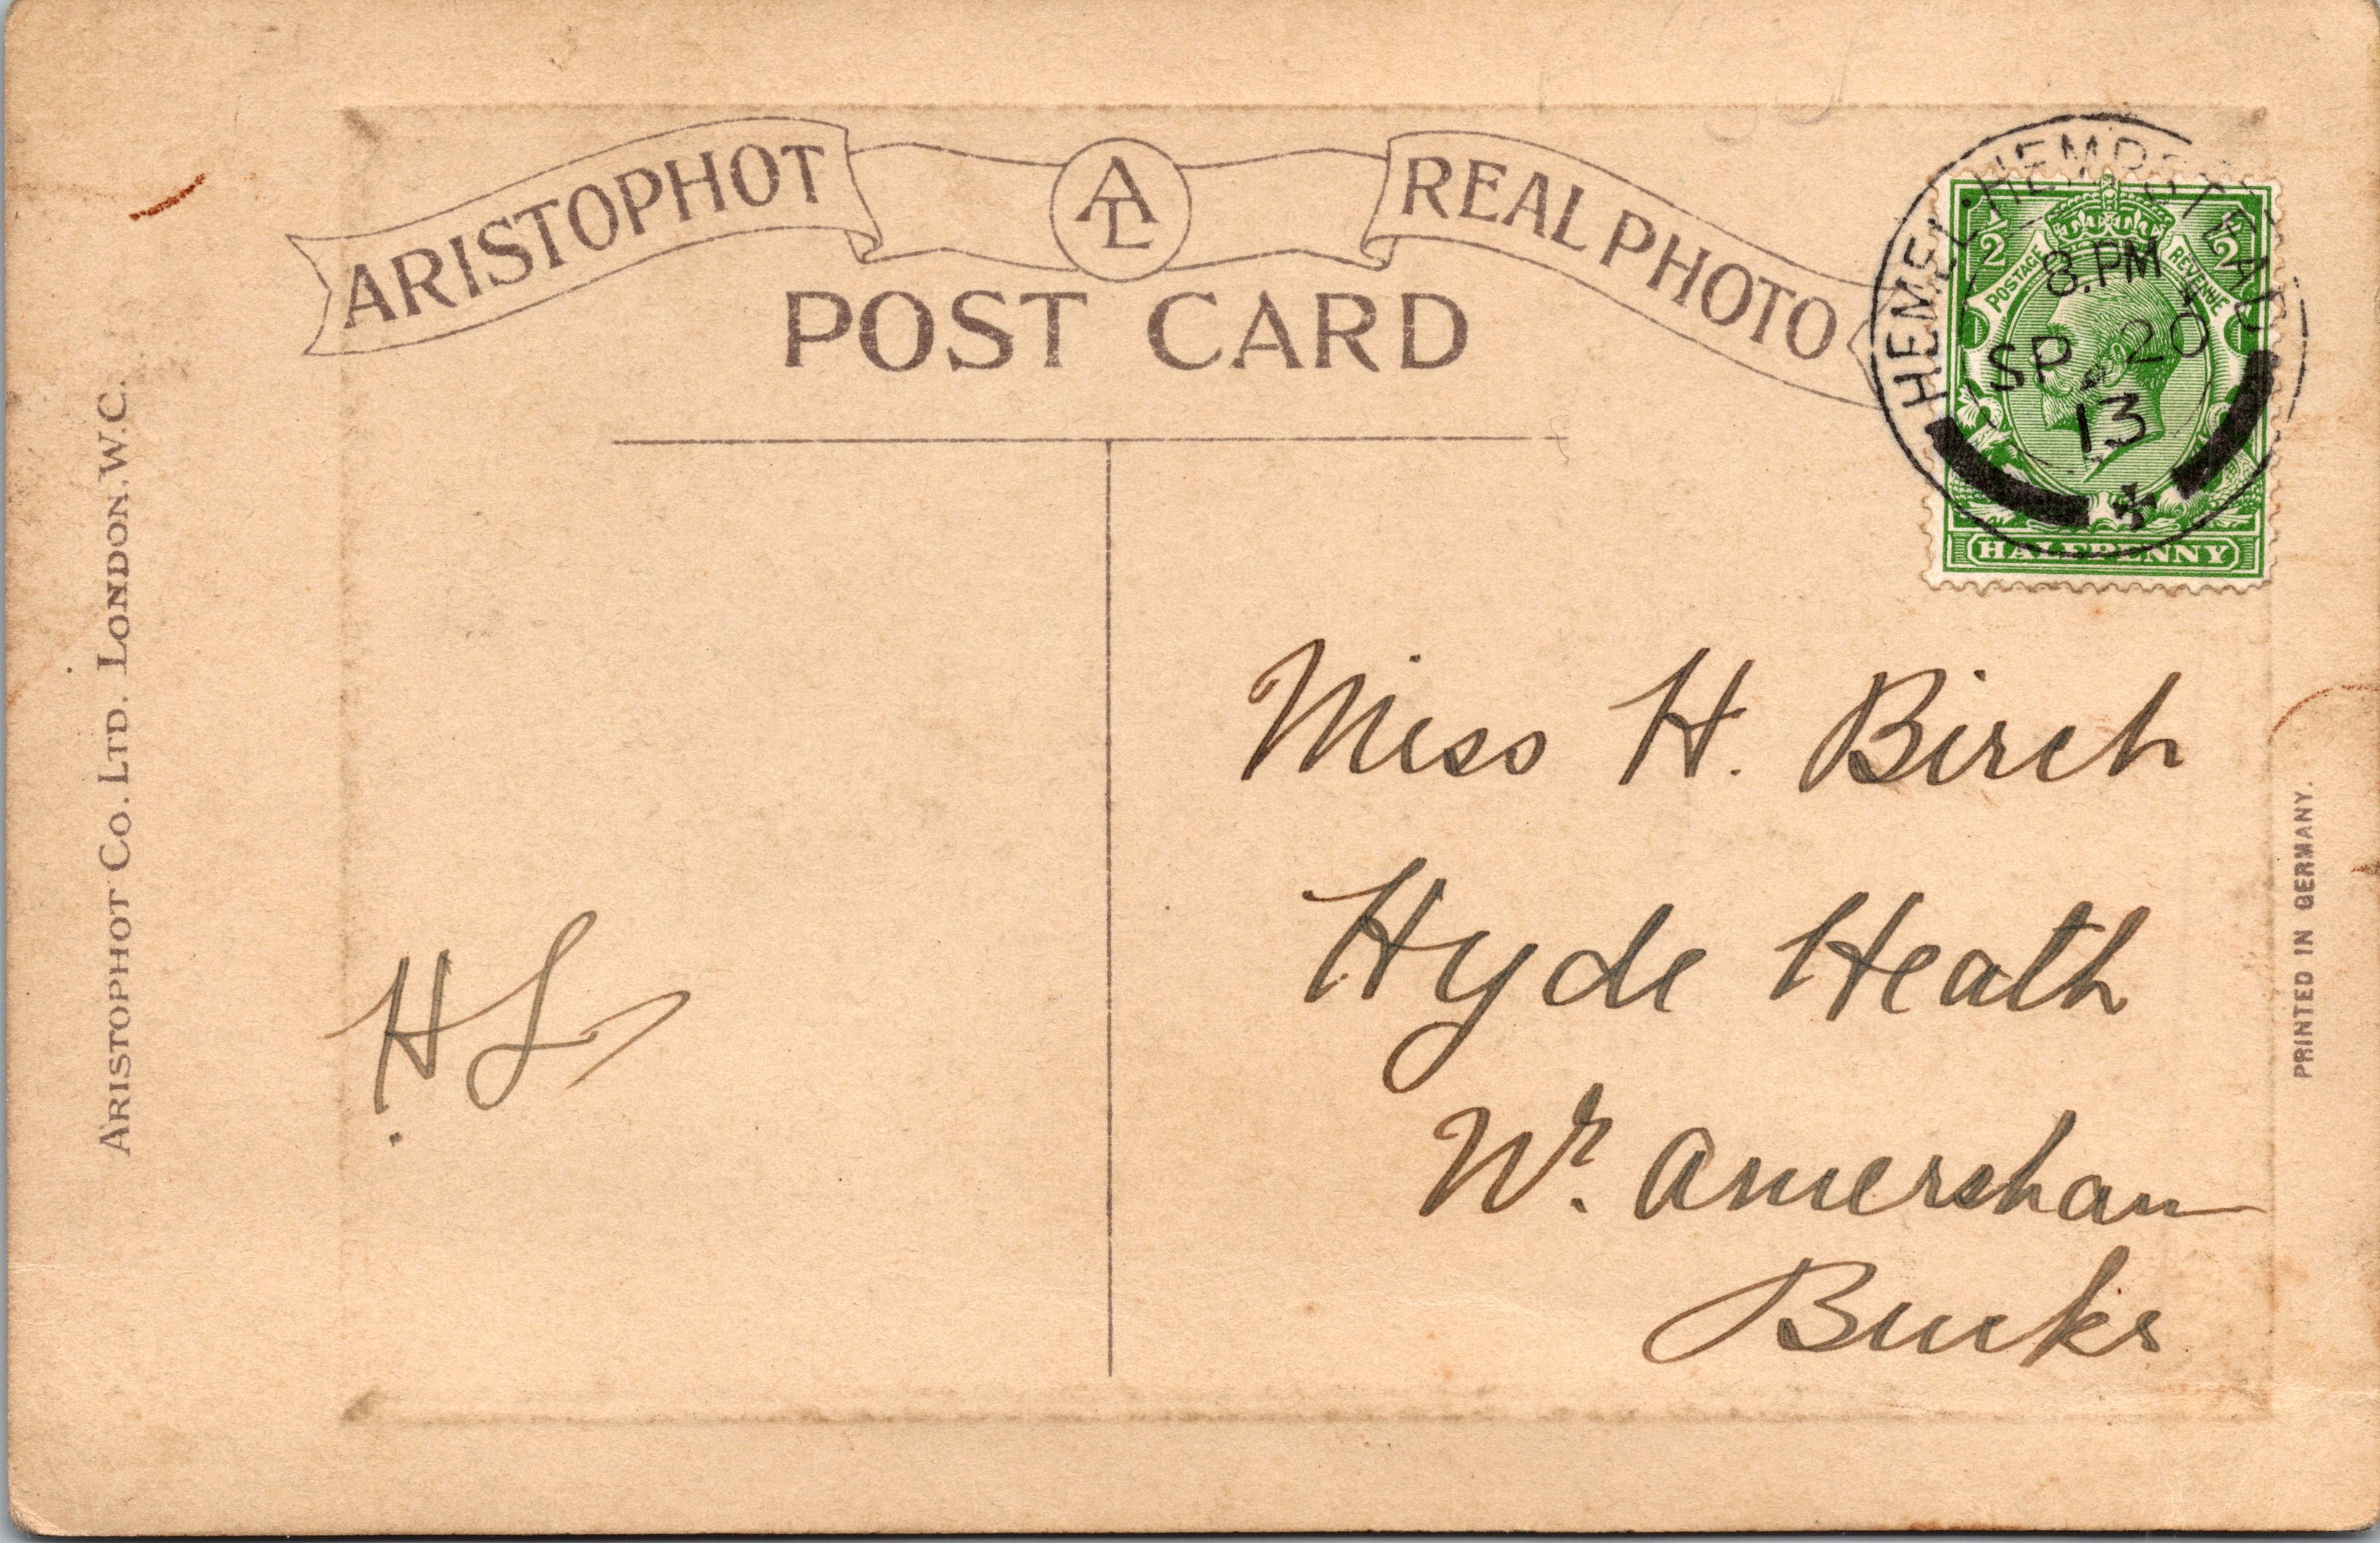 ARISTOPHOT
AL
REAL PHOTO
POST CARD
HEMEL·HEMPSTEAD
8.PM
SP 20
13
1/2 1/2
POSTAGE REVENUE
HALFPENNY
Miss H. Birch
Hyde Heath
Nr. Amersham
Bucks
H L
ARISTOPHOT CO. LTD. LONDON. W.C.
PRINTED IN GERMANY.